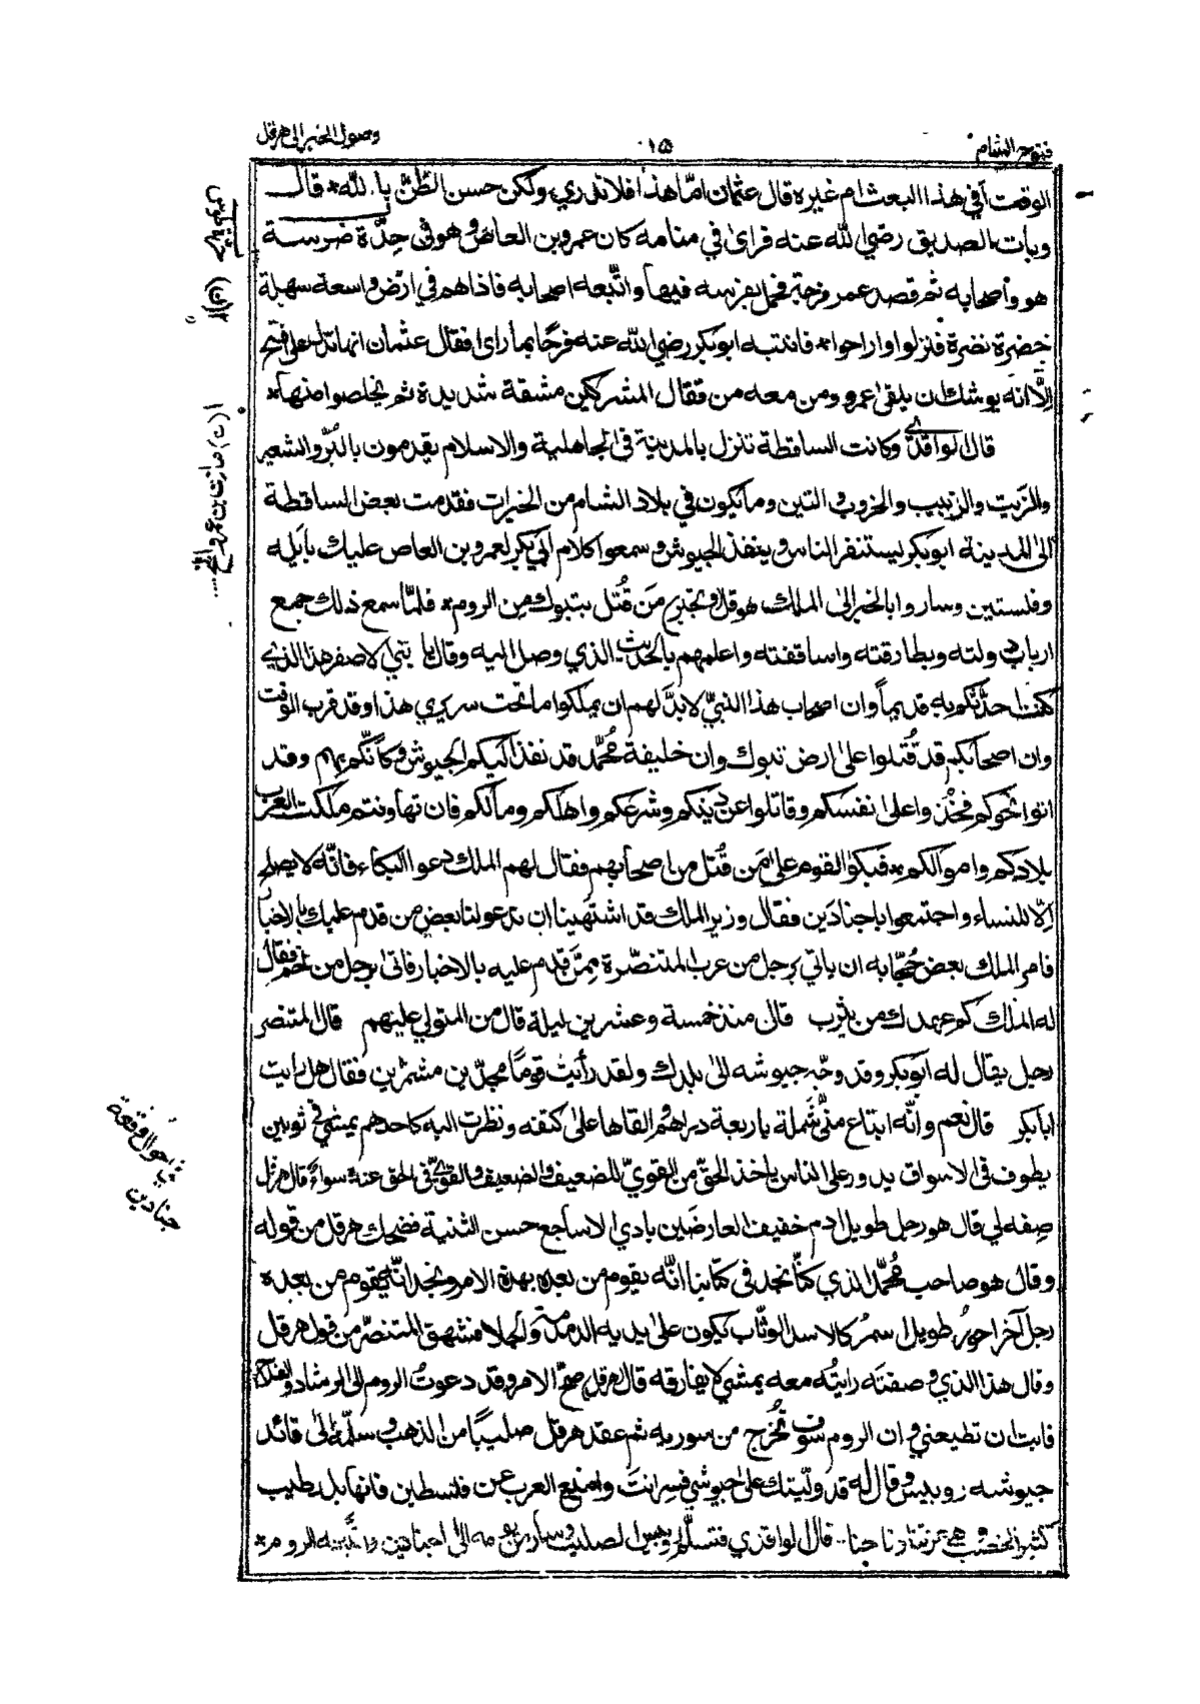 فتوح الشام
١٥
وصول الخبر الى هرقل
الوقعت أفي هذا البعث ام غيره قال عثمان امّا هذا فلا ندري ولكن حسن الظّنّ بالله * قال
وبات الصديق رضي الله عنه فرأى في منامه كان عمرو بن العاص وهو في حدّة ضرسة
هو وأصحابه ثم قصد عمرو فرجة فحمل بفرسه فيها واتّبعه اصحابه فاذا هم في ارض واسعة سهلة
خضرة نضرة فنزلوا واراحوا * فانتبه ابو بكر رضي الله عنه فرحًا بما رأى فقال عثمان انها تدل على فتح
الّا انه يوشك ان يلقى عمرو ومن معه من قتال المشركين مشقة شديدة ثم يخلصوا منها *
قال الواقدي وكانت الساقطة تنزل بالمدينة في الجاهلية والاسلام يقدمون بالبُرّ والشعير
والزّيت والزبيب والخروب والتين وما يكون في بلاد الشام من الخيرات فقدمت بعض الساقطة
الى المدينة ابو بكر يستنفر الناس وينفذ الجيوش وسمعوا كلام ابي بكر لعمرو بن العاص عليك بأيله
وفلستين وساروا بالخبر الى الملك هرقل وتجبر من قُتل بتبوك من الروم * فلمّا سمع ذلك جمع
ارباب دولته وبطارقته واساقفته واعلمهم بالحديث الذي وصل اليه وقال يا بني الاصفر هذا الذي
كنت احدّثكم به قديماً وان اصحاب هذا النبيّ لا بدّ لهم ان يملكوا ما تحت سريري هذا وقد قرب الوقت
وان اصحابكم قد قُتلوا على ارض تبوك وان خليفة محمّد قد نفذ اليكم الجيوش وكأنّكم بهم وقد
اتوا نحوكم فخذوا على انفسكم وقاتلوا عن دينكم وشرعكم واهلكم ومالكم فان تهاونتم ملكت العرب
بلادكم واموالكم * فبكوا القوم على من قُتل من اصحابهم فقال لهم الملك دعوا البكاء فانّه لا يصلح
الّا للنساء واجتمعوا باجنادين فقال وزير الملك قد اشتهينا ان تدعو لنا بعض من قدم عليك بالاخبار
فامر الملك بعض حُجّابه ان ياتي برجل من عرب المتنصّرة ممّن قدم عليه بالاخبار فاتى برجل من لخم فقال
له الملك كم عهدك من يثرب قال منذ خمسة وعشرين ليلة قال من المتولي عليهم قال المتنصر
رجل يقال له ابو بكر وقد وجّه جيوشه الى بلدك ولقد رأيت قومًا مجدّين مشمّرين فقال هل رأيت
ابا بكر قال نعم وانّه ابتاع منّي شملة باربعة دراهم والقاها على كتفه ونظرت اليه كاحدهم يمشي في ثوبين
يطوف في الاسواق يدور على الناس ياخذ الحقّ من القويّ للضعيف والضعيف والقويّ في الحق عنده سواءٌ قال هرقل
صفه لي قال هو رجل طويل ادم خفيف العارضين بادي الاساجع حسن الثنية فضحك هرقل من قوله
وقال هو صاحب محمّد الذي كنّا نجد في كتابنا انّه يقوم من بعده بهذا الامر ونجد انّه يقوم من بعده
رجل آخر احور طويل اسمر كالاسد الوثّاب يكون على يديه الدمدمة والجلا فشهق المتنصّر من قول هرقل
وقال هذا الذي وصفته رأيتُه معه يمشي لا يفارقه قال هرقل صحّ الامر وقد دعوتُ الروم الى الرشاد والفلاح
فابت ان تطيعني وان الروم سوف تخرج من سورية ثم عقد هرقل صليبًا من الذهب وسلّمه الى قائد
جيوشه روبيس وقال له قد ولّيتك على جيوشي فسر انت وامنع العرب عن فلسطين فانها بلد طيب
كثير الخصب وهي عزنا وجاهنا وتاجنا قال الواقدي فتسلّم روبيس الصليب وسار من يومه الى اجنادين واتّبعته الروم *
(ن)
(ت) مازن بن عمرو
في احوال وقعة
جنادين